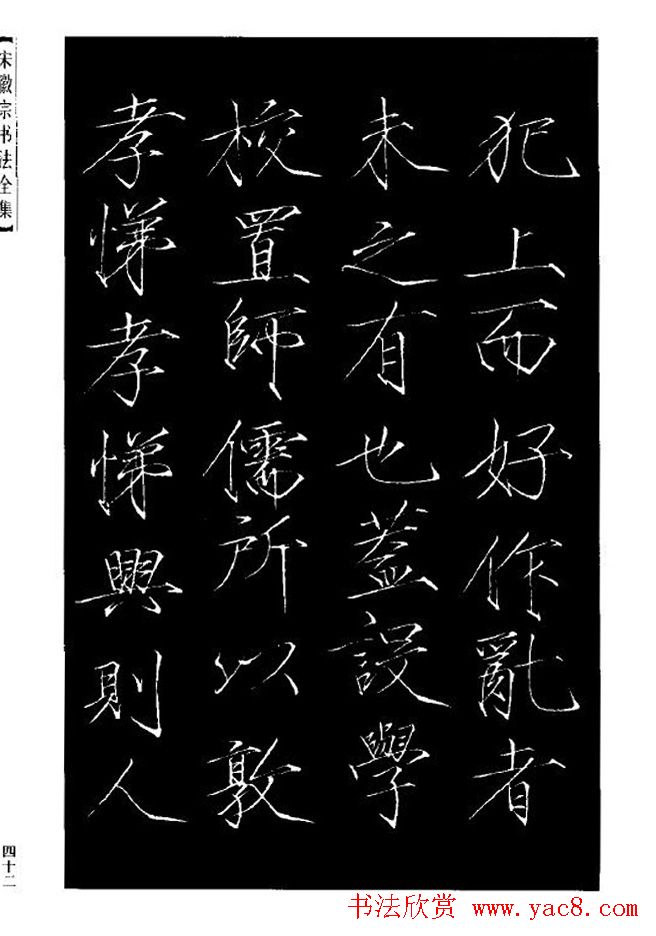 犯上而好作亂者
未之有也蓋設學
校置師儒所以敦
孝悌孝悌興則人
【宋徽宗书法全集】
四十二
书法欣赏 www.yac8.com